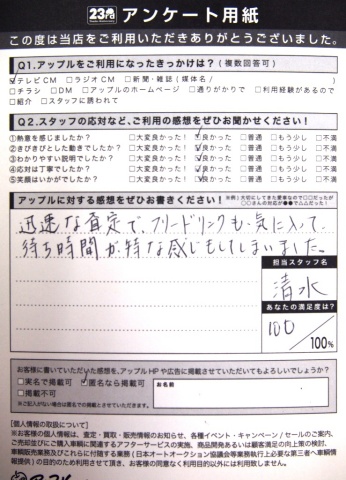 23ard アンケート用紙
この度は当店をご利用いただきありがとうございました。
Q1.アップルをご利用になったきっかけは？（複数回答可）
☑テレビCM □ラジオCM □新聞・雑誌（媒体名/ ）
□チラシ □DM □アップルのホームページ □通りがかりで □利用経験があるので
□紹介 □スタッフに誘われて
Q2.スタッフの応対など、ご利用の感想をぜひお聞かせください！
①熱意を感じましたか？ □大変良かった！ ☑良かった □普通 □もう少し □不満
②きびきびとした動きでしたか？ □大変良かった！ ☑良かった □普通 □もう少し □不満
③わかりやすい説明でしたか？ □大変良かった！ ☑良かった □普通 □もう少し □不満
④応対は丁寧でしたか？ □大変良かった！ ☑良かった □普通 □もう少し □不満
⑤笑顔はいかがでしたか？ □大変良かった！ ☑良かった □普通 □もう少し □不満
アップルに対する感想をぜひお書きください！
迅速な査定で、フリードリンクも気に入って
待ち時間が特な感じもしてしまいました。
担当スタッフ名
清水
あなたの満足度は？
100
100%
お客様に書いていただいた感想を、アップルHPや広告に掲載させていただいてもよろしいでしょうか？
□実名で掲載可 ☑匿名なら掲載可
□掲載不可
お名前
※ご記入がない場合は匿名での掲載とさせていただきます。
【個人情報の取扱について】
※お客様の個人情報は、査定・買取・販売情報のお知らせ、各種イベント・キャンペーン／セールのご案内、
ご売却並びにご購入車輌に関連するアフターサービスの実施、商品開発あるいは顧客満足の向上策の検討、
車輌販売業務及びこれに付随する業務（日本オートオークション協議会等業務執行上必要な第三者へ車輌情
報提供）の目的のため利用させて頂き、お客様の同意なく利用目的以外には利用致しません。